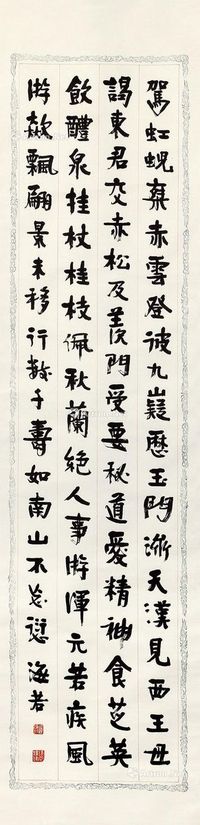 駕虹蜺乘赤雲登彼九嶷歷玉門濟天漢見西王母
謁東君交赤松及羨門受要秘道愛精神食芝英
飲醴泉拄杖桂枝佩秋蘭絕人事游渾元若疾風
游欻飄翩景未移行數千壽如南山不忘愆 海若